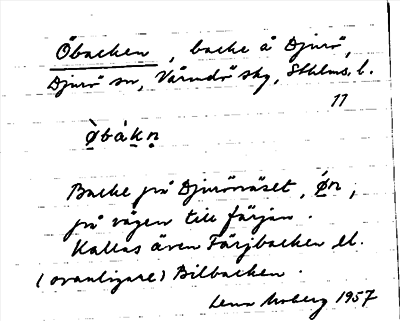 Öbacken, backe å Djurö,
Djurö sn, Värmdö skg, Sthlms l.
11
Ø̀bákn̥
Backe på Djurönäset, ǿn,
på vägen till färjan.
Kallas även Färjbacken el.
(ovanligare) Bilbacken.
Lena Moberg 1957